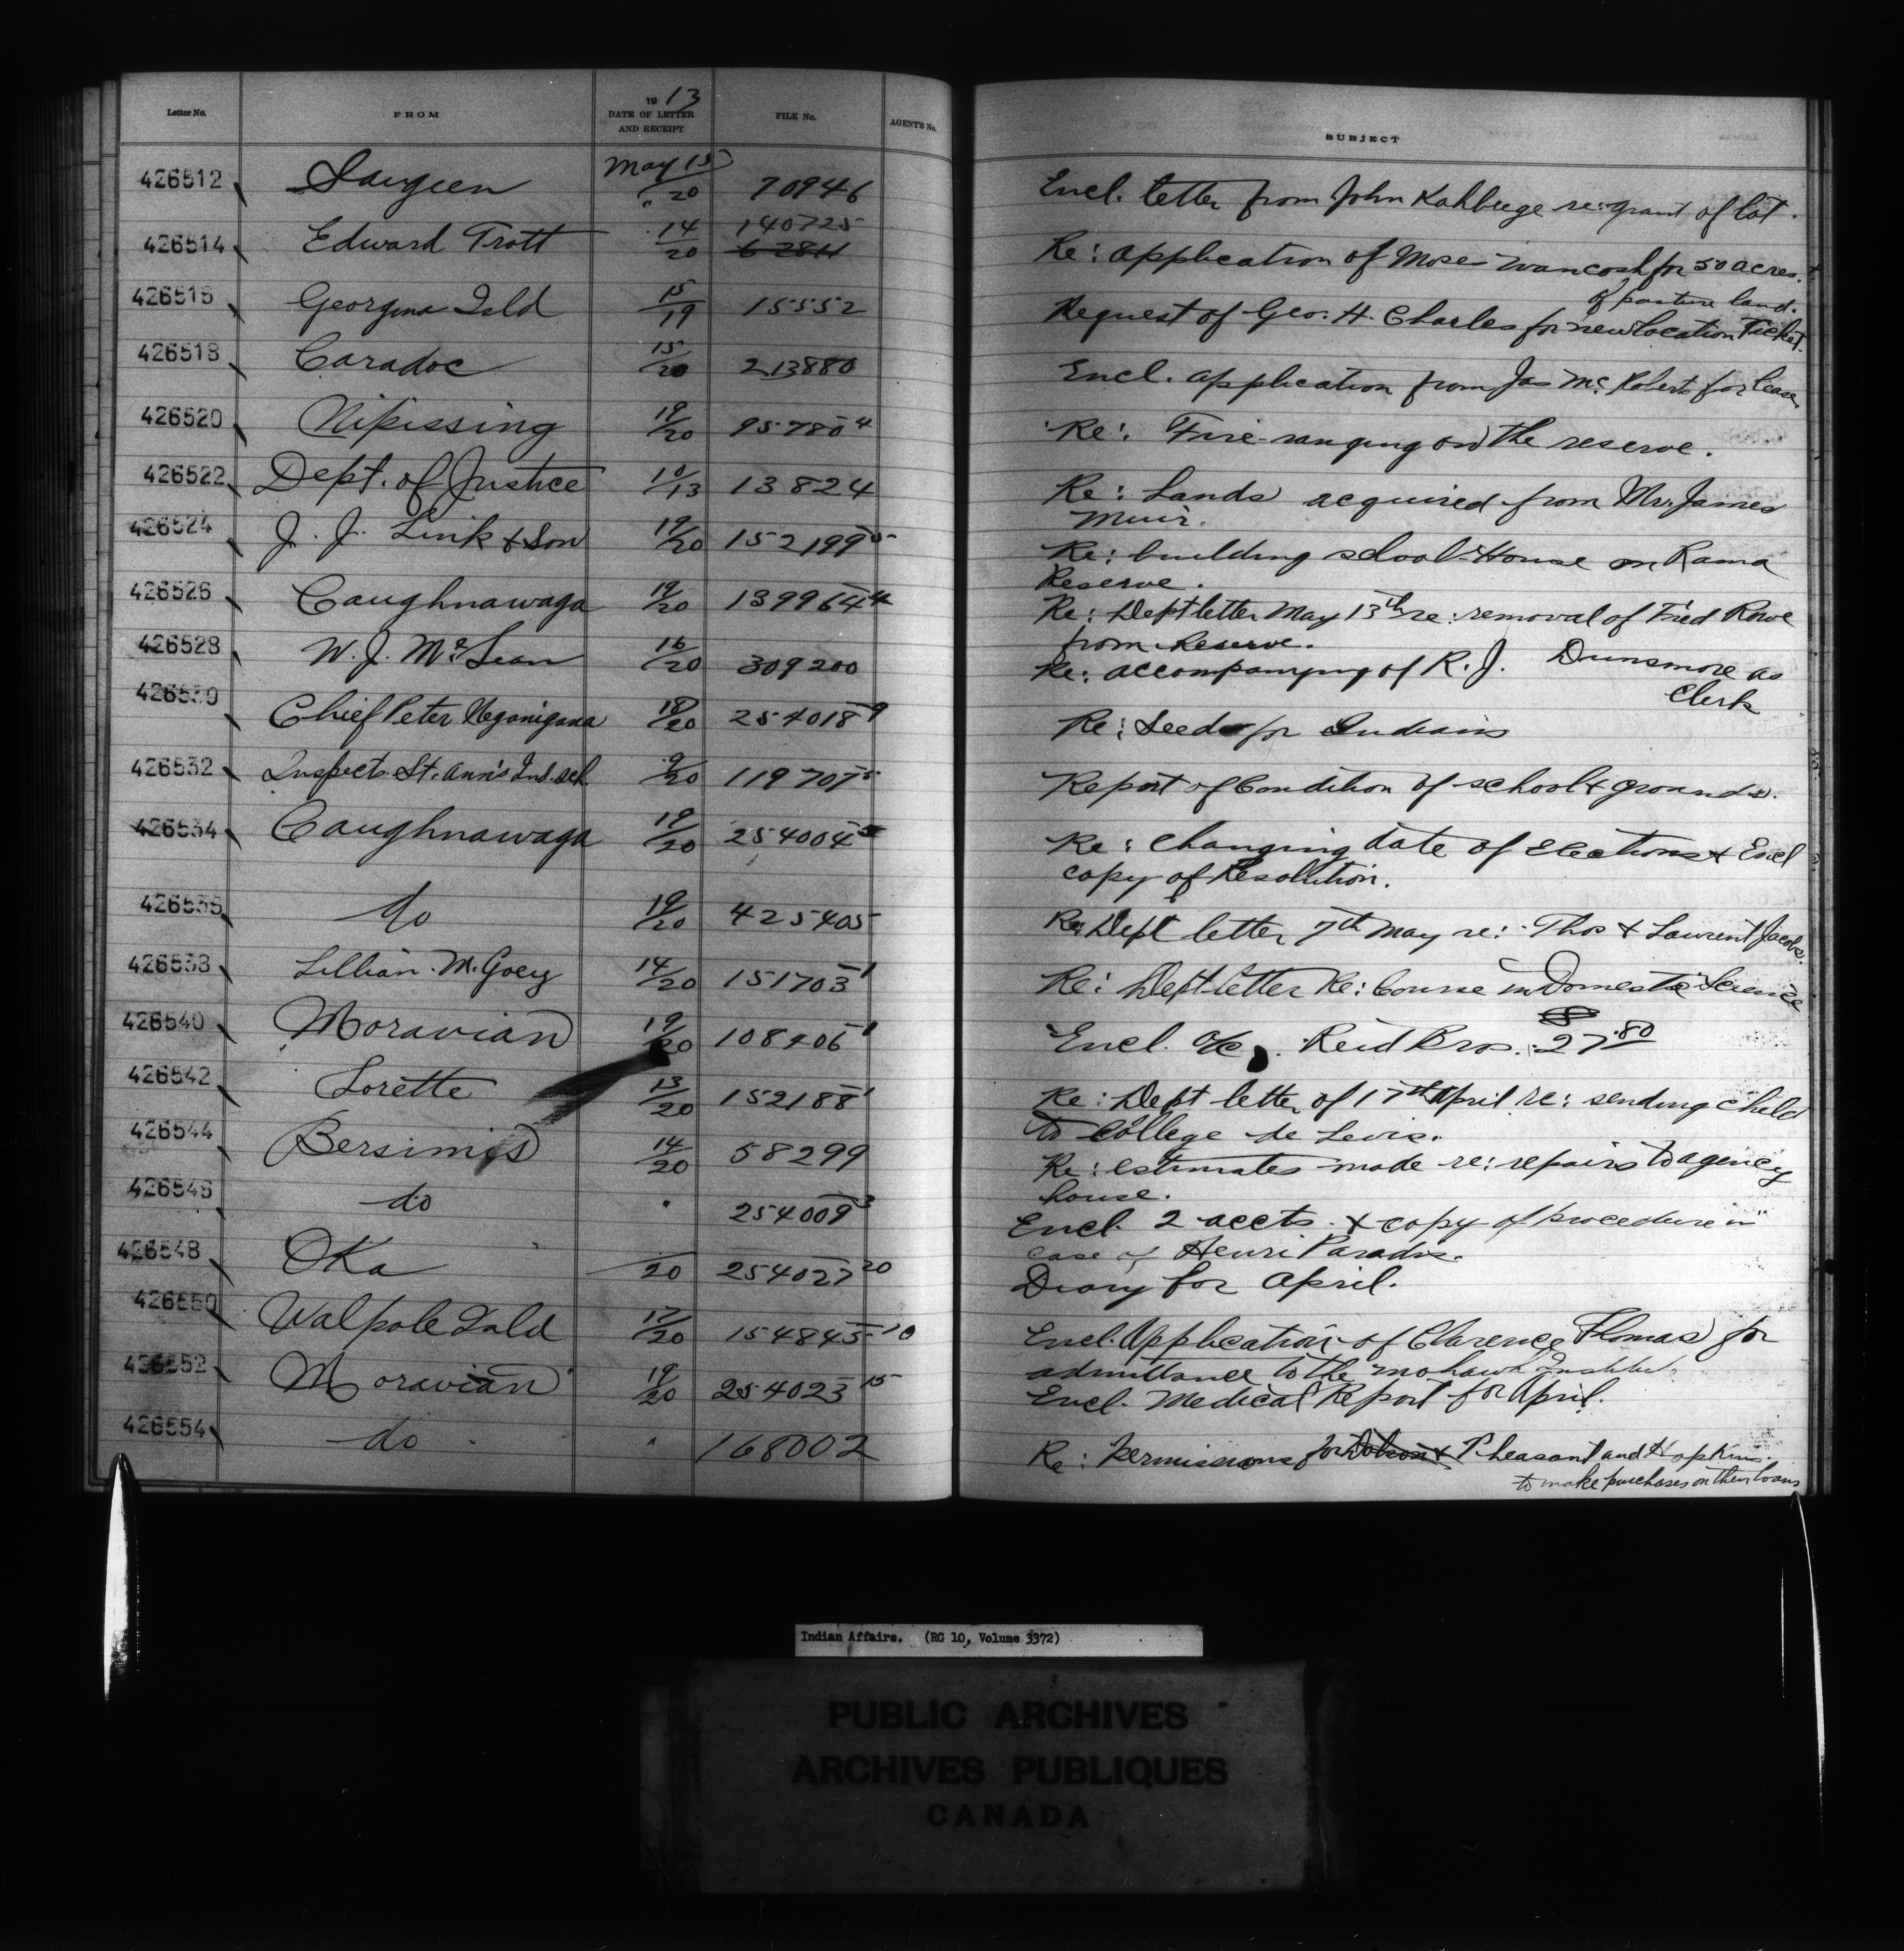 Letter No. FROM 1913 DATE OF LETTER AND RECEIPT FILE No. AGENT'S No. SUBJECT
426512 Saugeen May 15/20 70946 Encl. letter from John Kahbeege re: grant of lot.
426514 Edward Trott 14/20 140725 62811 Re: application of Moses Wancosh for 50 acres
of pasture land.
426516 Georgina Isld 15/19 15552 Request of Geo. H. Charles for new location Ticket.
426518 Caradoc 15/20 213880 Encl. application from Jas McRoberts for lease
426520 Nipissing 19/20 95780-4 Re: Fire-ranging on the reserve.
426522 Dept. of Justice 10/13 13824 Re: Lands acquired from Mr. James
Muir.
426524 J. J. Link & Son 19/20 152199-5 Re: building school-House on Rama
Reserve.
426526 Caughnawaga 19/20 139964-4 Re: Dept letter May 13th re: removal of Fred Rowe
from Reserve.
426528 W. J. McLean 16/20 309200 Re: accompanying of R. J. Dunsmore as
Clerk
426530 Chief Peter Neganigana 18/20 254018-9 Re: Seeds for Indians
426532 Inspects. St. Ann's Ind. sch. 9/20 119707-5 Report of Condition of school & grounds.
426534 Caughnawaga 19/20 254004-5 Re: Changing date of Elections & Encl
copy of Resolution.
426536 do 19/20 425405 Re: Dept letter 7th May re: Thos & Laurent Jacobs.
426538 Lillian M. Goey 14/20 151703-1 Re: Dept letter Re: Course in Domestic Science
426540 Moravian 19/20 108406-1 Encl. a/c. Reid Bros. 27.80
426542 Lorette 13/20 152188-1 Re: Dept letter of 17th April re: sending child
to College de Levis.
426544 Bersimis 14/20 58299 Re: estimates made re: repairs to agency
house.
426546 do " 254009-3 Encl. 2 accts. & copy of procedure in
case of Henri Paradis.
426548 Oka /20 254027-20 Diary for April.
426550 Walpole Isld 17/20 154845-10 Encl. Application of Clarence Thomas for
admittance to the Mohawk Institute
426552 Moravian 19/20 254023-15 Encl. Medical Report for April.
426554 do " 168002 Re: Permissions for Dolson & Pheasant and Hopkins
to make purchases on their loans
Indian Affairs. (RG 10, Volume 3372)
PUBLIC ARCHIVES
ARCHIVES PUBLIQUES
CANADA